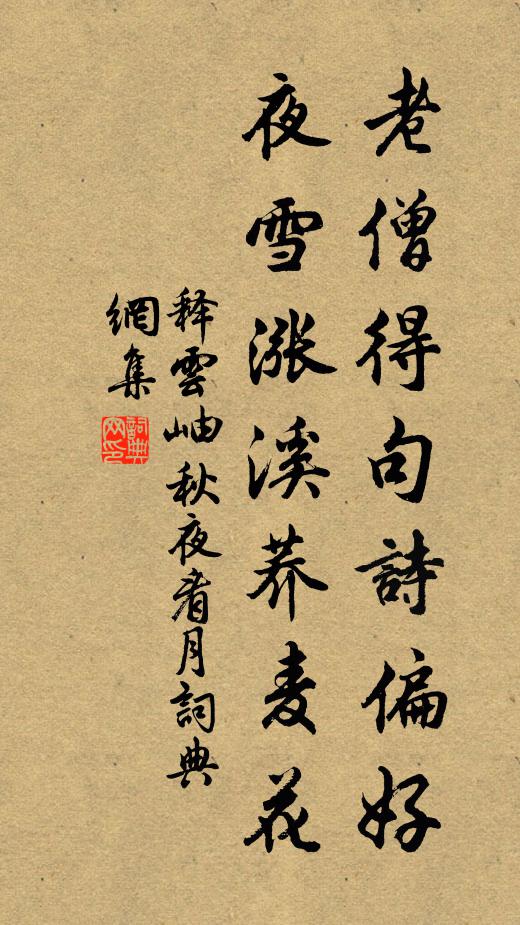 老僧得句詩偏好
夜雪漲溪荞麦花
释雲岫秋夜看月詞典
網集
詞典
网印